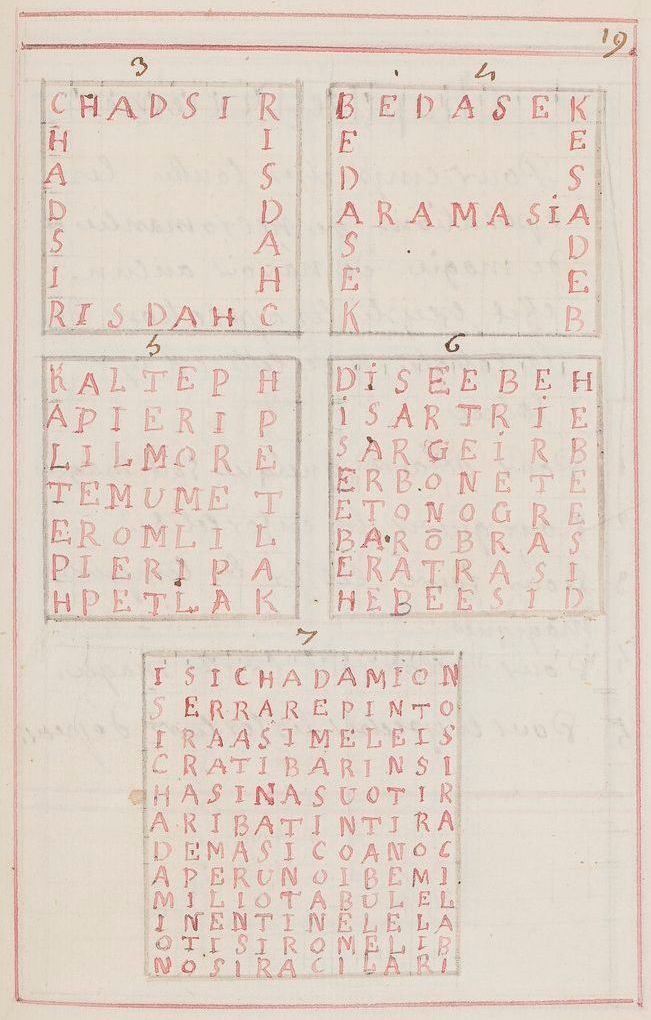 19
3
CHADSIR
H I
A S
D D
S A
I H
RISDAHC
4
BEDASEK
E E
D S
ARAMASiA
S D
E E
K B
5
KALTEPH
APIERIP
LILMORE
TEMUMET
EROMLIL
PIERIPA
HPETLAK
6
DiSEEBEH
iSARTRiE
SARGEiRB
ERBONETE
ETONOGRE
BARŌBRAS
ERATRASI
HEBEESID
7
ISICHADAMION
SERRAREPINTO
IRAASIMELEIS
CRATIBARINSI
HASINASUOTIR
ARIBATINTIRA
DEMASICOANOC
APERUNOIBEMI
MILIOTABULEL
INENTINELELA
OTISIROMELIB
NOSIRACILARI